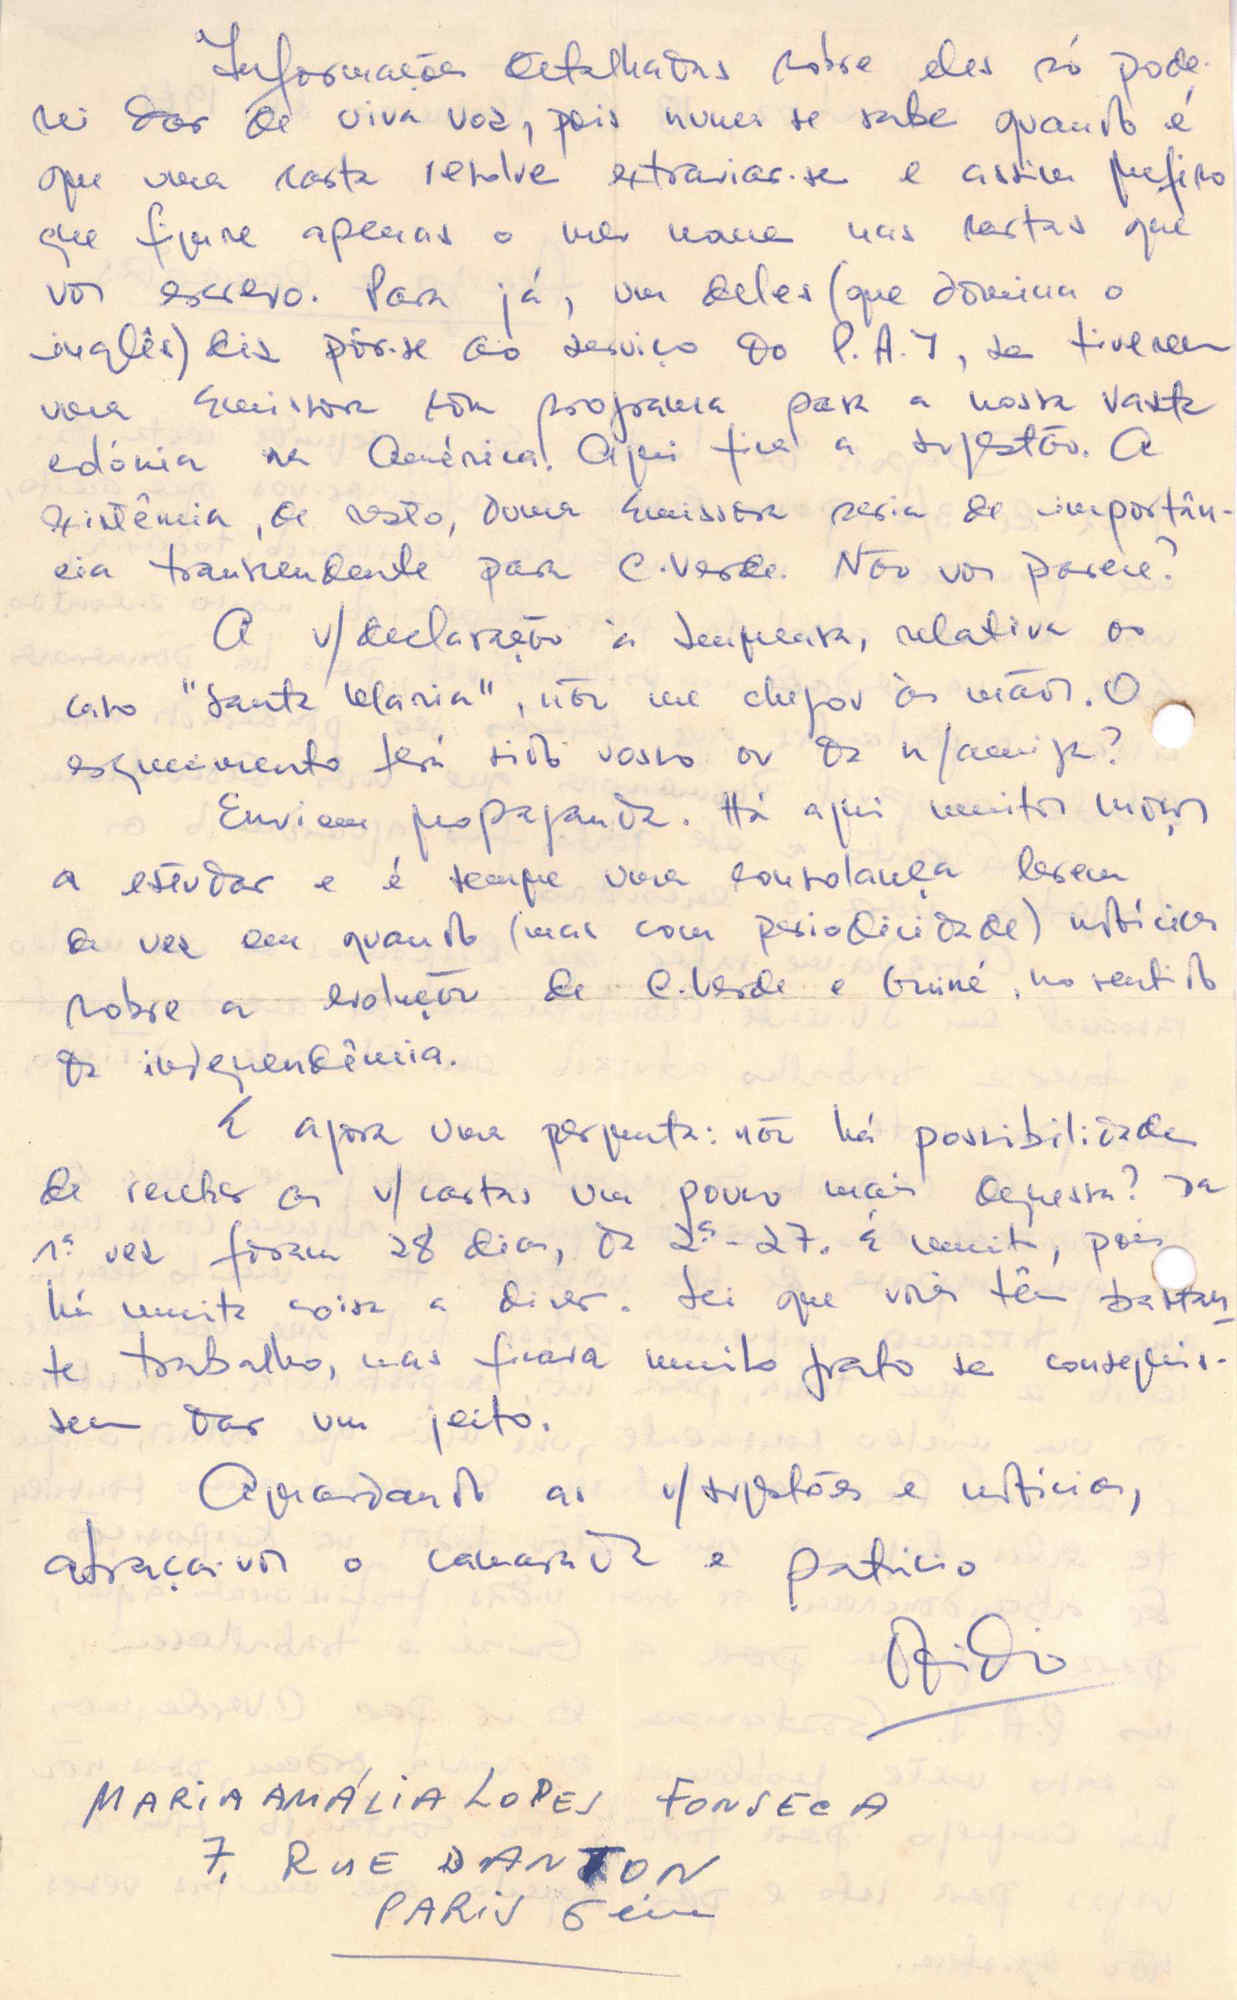 Informações detalhadas sobre eles só pode-
rei dar de viva voz, pois nunca se sabe quando é
que uma carta resolve extraviar-se e assim prefiro
que figure apenas o meu nome nas cartas que
vos escrevo. Para já, um deles (que domina o
inglês) diz pôr-se ao serviço do P.A.I, se tiverem
uma emissora com programa para a nossa vasta
colónia na América. Aqui fica a sugestão. A
existência, de resto, duma emissora seria de importân-
cia transcendente para C. Verde. Não vos parece?
A v/declaração à Imprensa, relativa ao
caso "Santa Maria", não me chegou às mãos. O
esquecimento terá sido vosso ou da n/amiga?
Enviem propaganda. Há aqui muitos moços
a estudar e é sempre uma consolança lerem
de vez em quando (mas com periodicidade) notícias
sobre a evolução de C. Verde e Guiné, no sentido
da independência.
E agora uma pergunta: não há possibilidade
de receber as v/cartas um pouco mais depressa? Da
1ª vez foram 28 dias, da 2ª - 27. É muito, pois
há muita coisa a dizer. Sei que vocês têm bastan-
te trabalho, mas ficava muito grato se conseguis-
sem dar um jeito.
Aguardando as v/sugestões e notícias,
abraça-vos o camarada e patrício
MARIA AMÁLIA LOPES FONSECA
7, RUE DANTON
PARIS 6ème